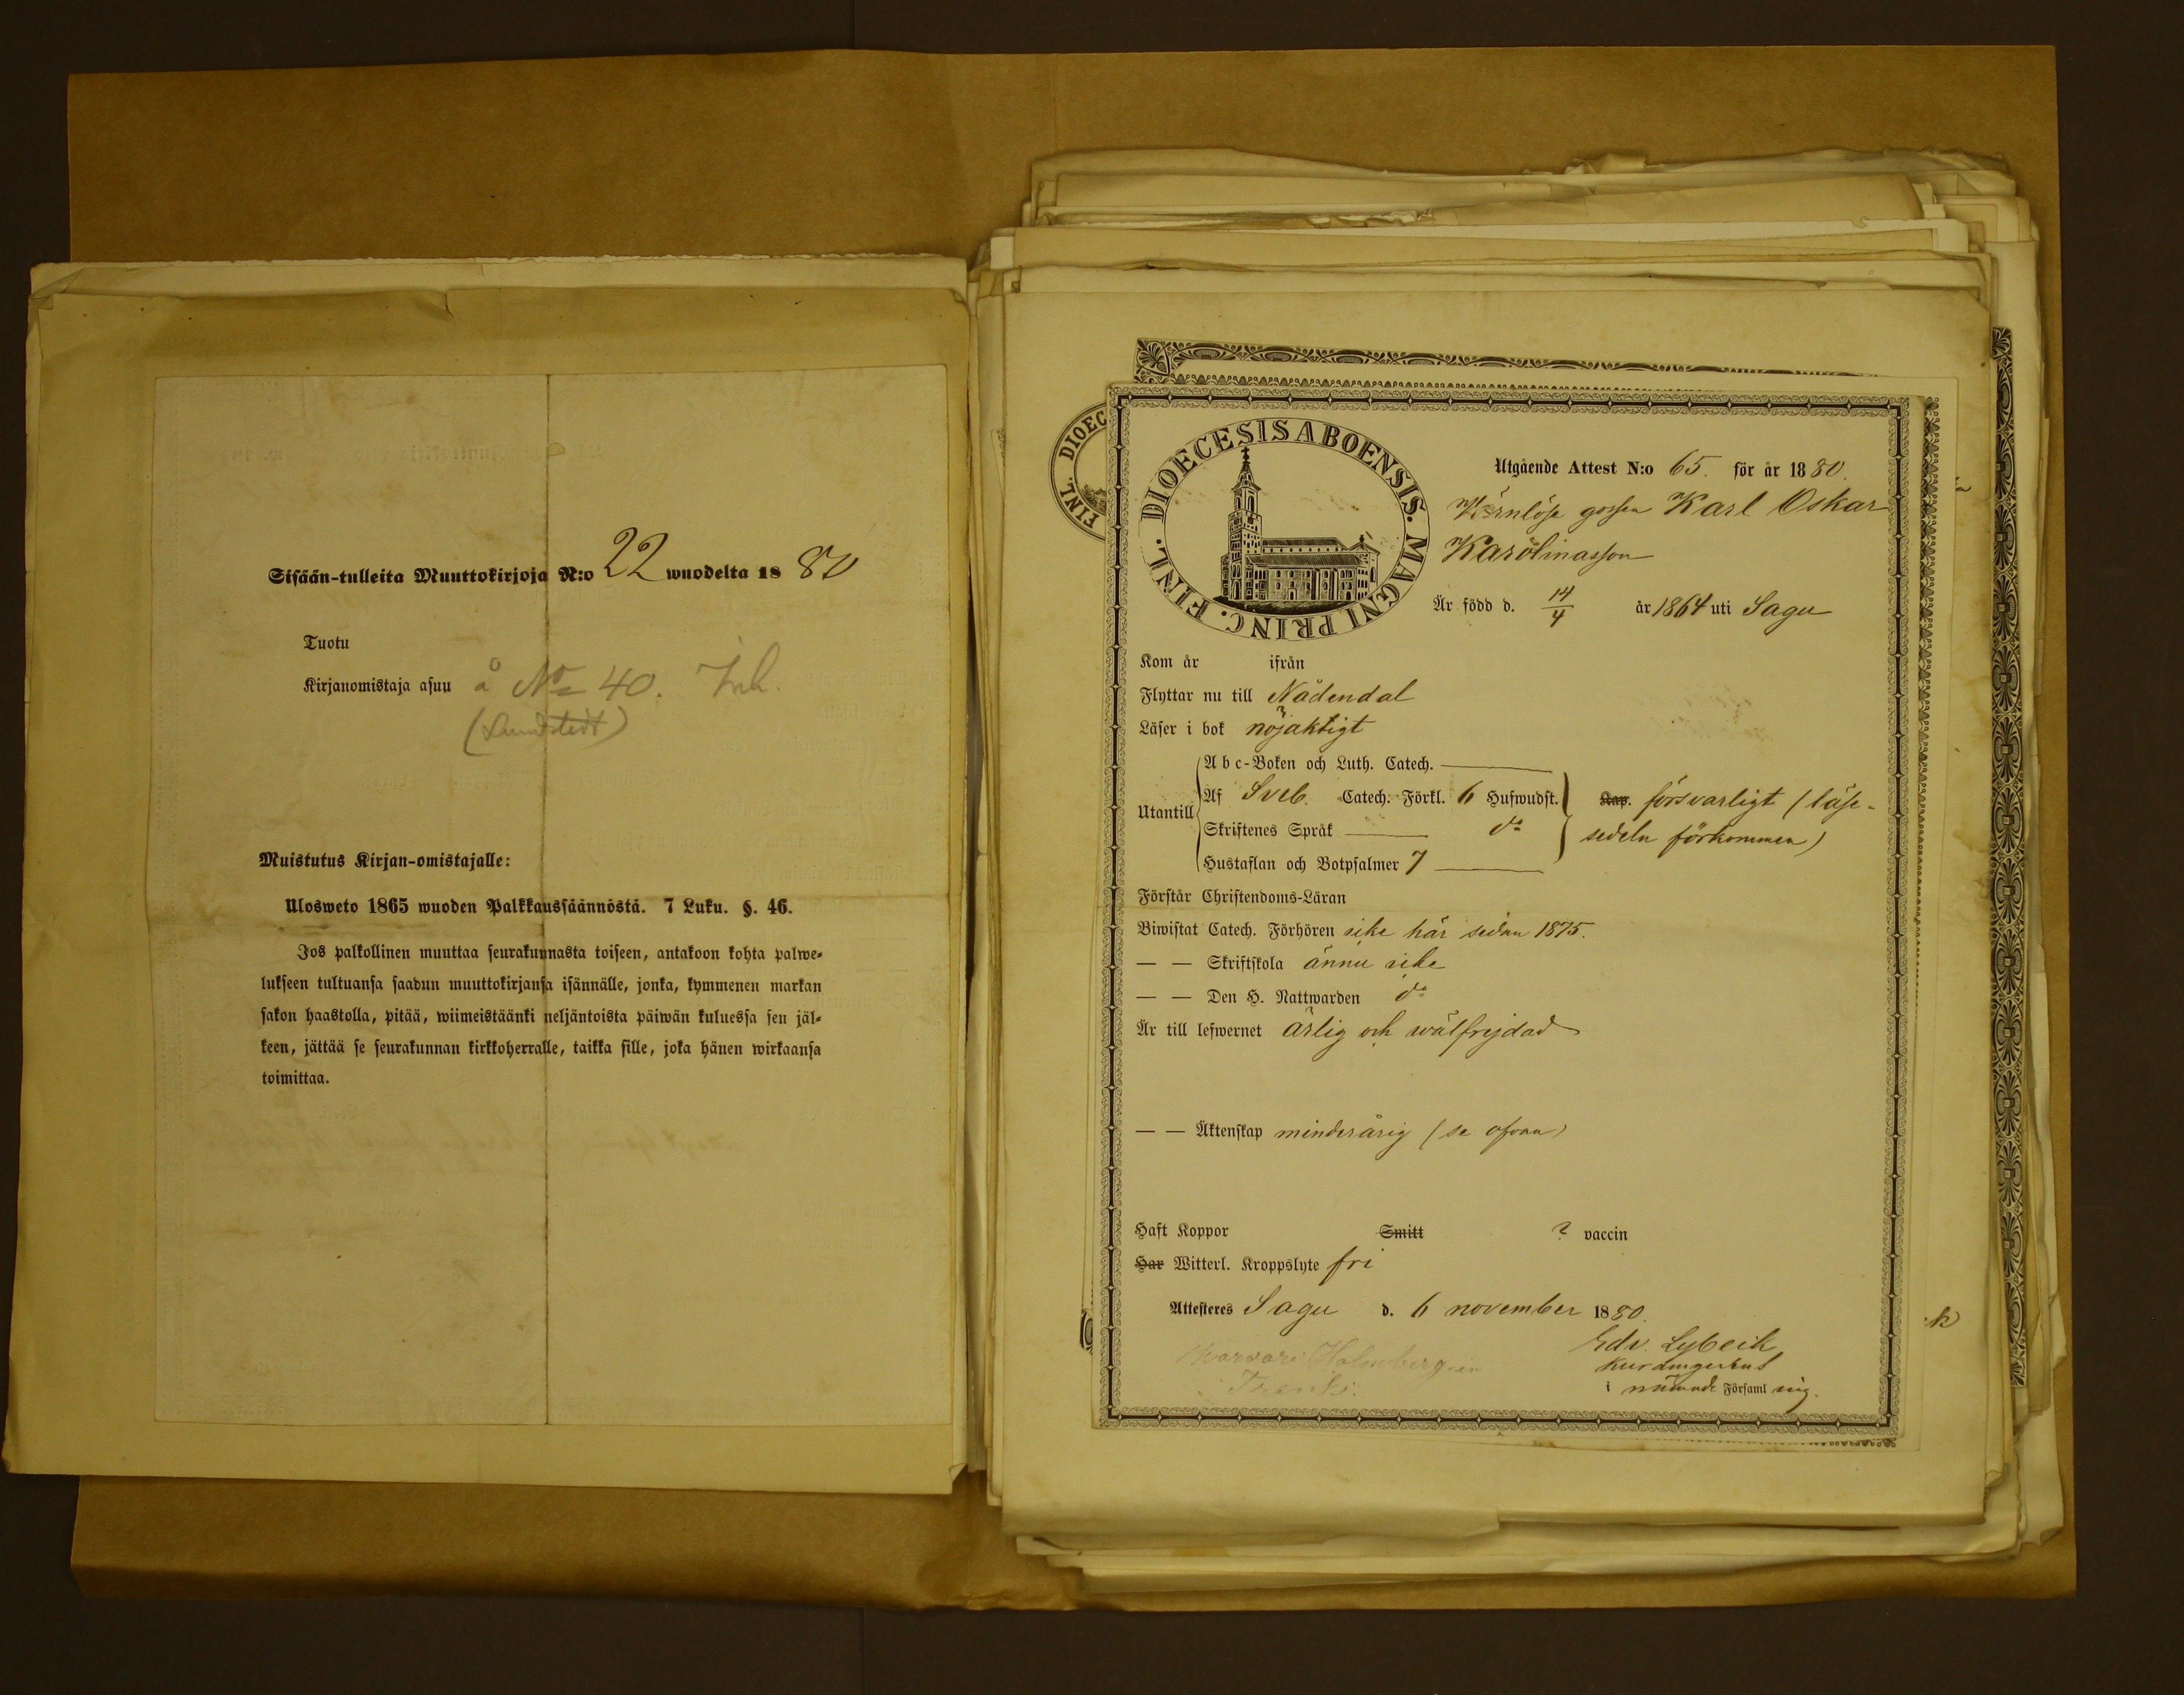 Sisään-tulleita Muuttokirjoja N:o 22 wuodelta 18 80
Tuotu
Kirjanomistaja asuu å No 40. Inh.
(Lundstedt)
Muistutus Kirjan-omistajalle:
Ulosweto 1865 wuoden Palkkaussäännöstä. 7 Luku. §. 46.
Jos palkollinen muuttaa seurakunnasta toiseen, antakoon kohta palwe-
lukseen tultuansa saadun muuttokirjansa isännälle, jonka, kymmenen markan
sakon haastolla, pitää, wiimeistäänki neljäntoista päiwän kuluessa sen jäl-
keen, jättää se seurakunnan kirkkoherralle, taikka sille, joka hänen wirkaansa
toimittaa.
FINL. DIOEC
DIOECESIS ABOENSIS. MAGNI PRINC. FINL.
Utgående Attest N:o 65. för år 1880.
gossen Karl Oskar
Karolinasson
Är född d. 14/4 år 1864 uti Sagu
Kom år ifrån
Flyttar nu till Nådendal
Läser i bok nöjaktigt
Utantill
A b c-Boken och Luth. Catech.
Af Sveb. Catech. Förkl. 6 Hufwudst.
Skriftenes Språk do
Hustaflan och Botpsalmer 7
Kap. försvarligt (läse-
sedeln förkommen)
Förstår Christendoms-Läran
Biwistat Catech. Förhören icke här sedan 1875.
— — Skriftskola ännu icke
— — Den H. Nattwarden do
Är till lefwernet ärlig och wälfrejdad
— — Äktenskap minderårig (se ofvan)
Haft Koppor Smitt ? vaccin
Har Witterl. Kroppslyte fri
Attesteres Sagu d. 6 november 1880.
Edv. Lybeck
i nämnde Församl ing.
Holmberg